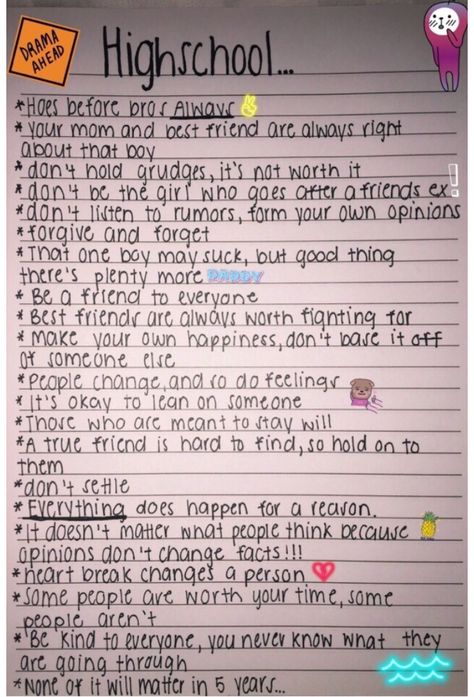 DRAMA
AHEAD
Highschool...
*Hoes before bros Always
*your mom and best friend are always right
about that boy
*don't hold grudges, it's not worth it
*don't be the girl who goes after a friends ex!
*don't listen to rumors, form your own opinions
*forgive and forget
*That one boy may suck, but good thing
there's plenty more DADDY
* Be a friend to everyone
* Best friends are always worth fighting for
* make your own happiness, don't base it off
of someone else
*People change, and so do feelings
* It's okay to lean on someone
*Those who are meant to stay will
*A true friend is hard to find, so hold on to
them
*don't settle
* Everything does happen for a reason.
*It doesn't matter what people think because
opinions don't change facts!!!
*heart break changes a person
*Some people are worth your time, some
people aren't
*Be kind to everyone, you never know what they
are going through
*None of it will matter in 5 years...